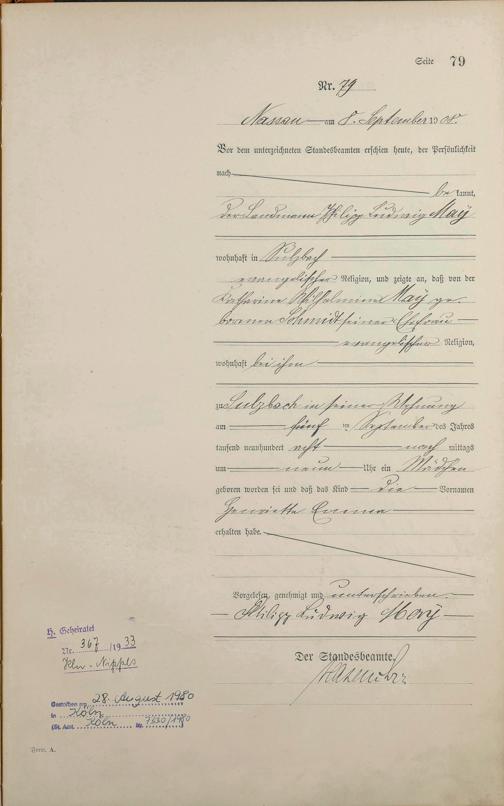 Seite 79
Nr. 79
Nassau am 8. September 1908.
Vor dem unterzeichneten Standesbeamten erschien heute, der Persönlichkeit
nach
be kannt,
der Landmann Philipp Ludwig May
wohnhaft in Sulzbach
evangelischer Religion, und zeigte an, daß von der
Katharine Wilhelmine May ge-
borenen Schmidt seiner Ehefrau
evangelischer Religion,
wohnhaft bei ihm
zu Sulzbach in seiner Wohnung
am fünf ten September des Jahres
tausend neunhundert acht nach mittags
um neun Uhr ein Mädchen
geboren worden sei und daß das Kind die Vornamen
Henriette Emma
erhalten habe.
Vorgelesen, genehmigt und unterschrieben.
Philipp Ludwig May
Der Standesbeamte.
H. Geheiratet
Nr. 367 /1933
Köln-Nippes
Gestorben am 28. August 1980
in Köln
(St. Amt Köln Nr. 7830/1980
Form. A.